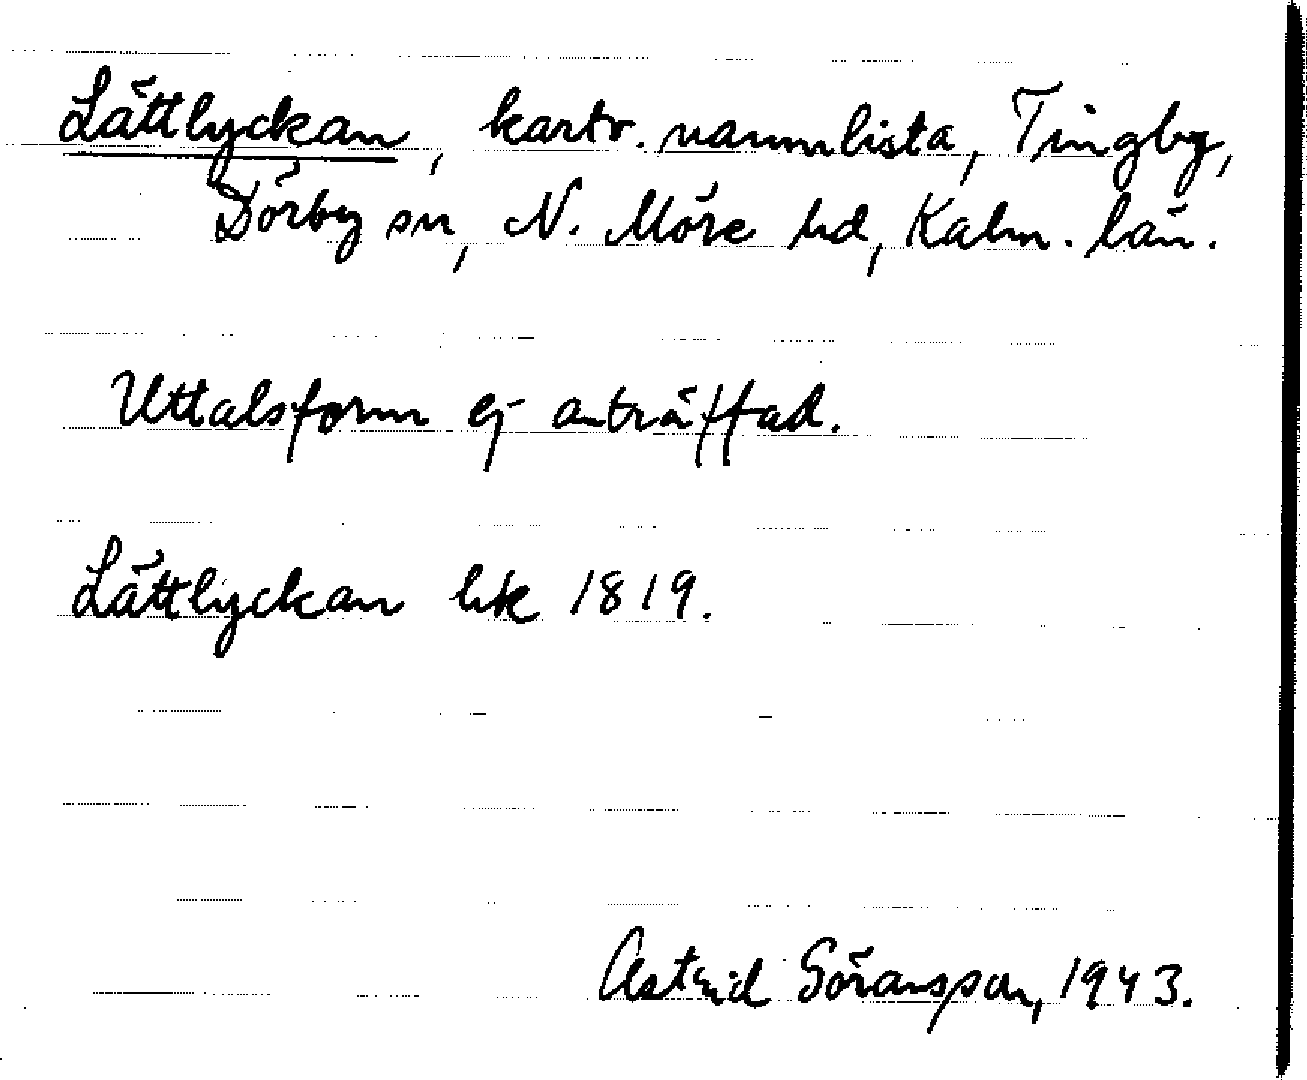 Lättlyckan, kartv. namnlista, Tingby,
Dörby sn, N. Möre hd, Kalm. län.
Uttalsform ej anträffad.
Lättlyckan lsk 1819.
Astrid Göransson, 1943.